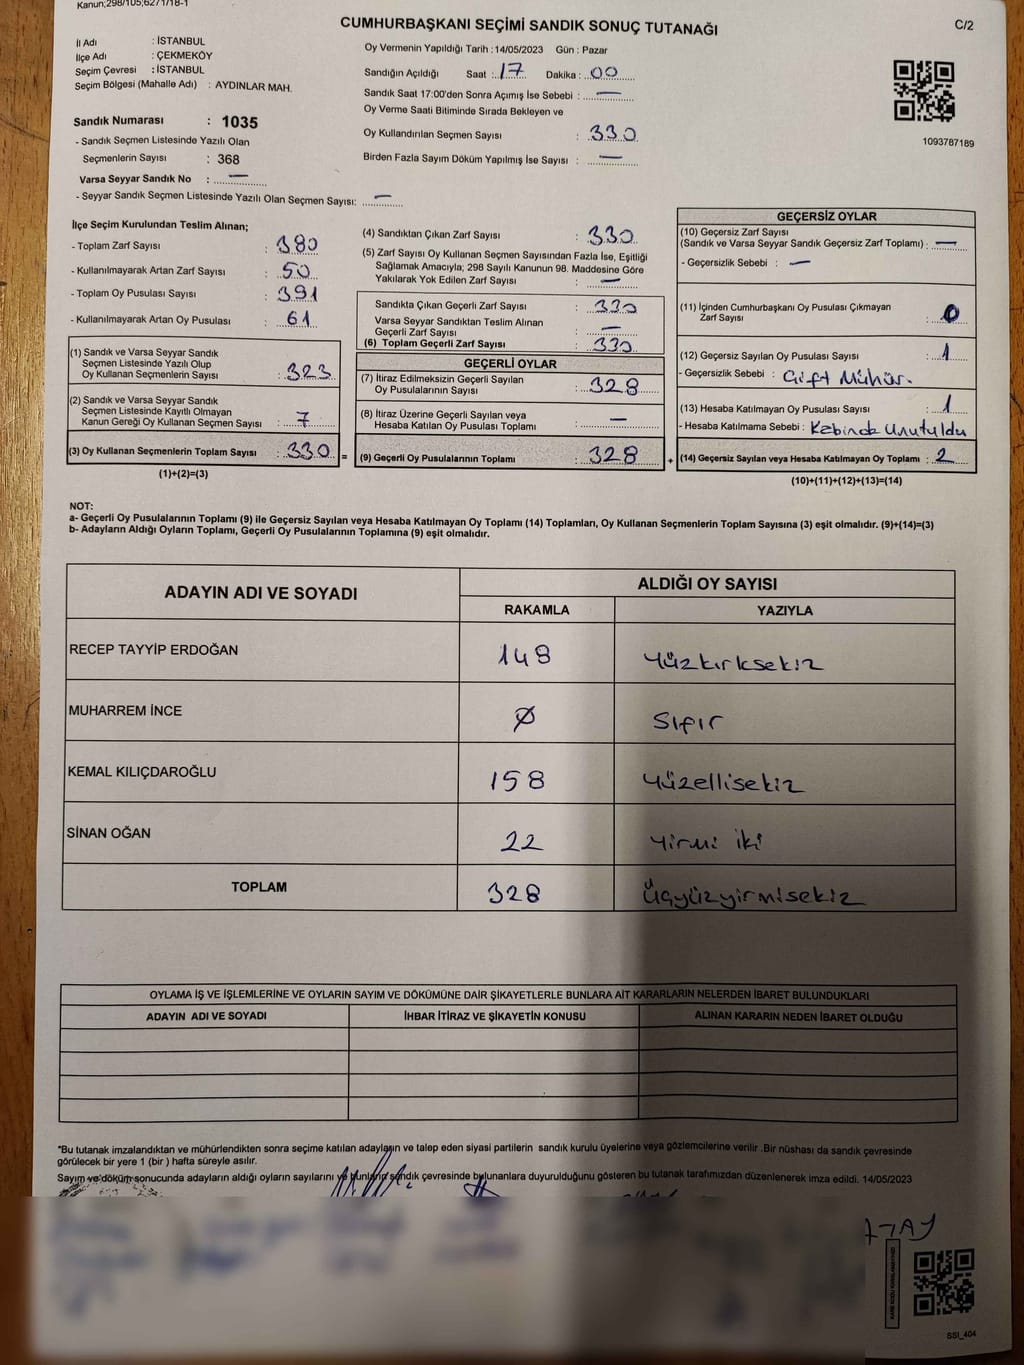 Kanun;298/105;6271/18-1
CUMHURBAŞKANI SEÇİMİ SANDIK SONUÇ TUTANAĞI
C/2
İl Adı : İSTANBUL
İlçe Adı : ÇEKMEKÖY
Seçim Çevresi : İSTANBUL
Seçim Bölgesi (Mahalle Adı) : AYDINLAR MAH.
Sandık Numarası : 1035
- Sandık Seçmen Listesinde Yazılı Olan
Seçmenlerin Sayısı : 368
Varsa Seyyar Sandık No : —
- Seyyar Sandık Seçmen Listesinde Yazılı Olan Seçmen Sayısı: —
Oy Vermenin Yapıldığı Tarih : 14/05/2023 Gün : Pazar
Sandığın Açıldığı Saat : 17 Dakika : 00
Sandık Saat 17:00'den Sonra Açımış İse Sebebi : —
Oy Verme Saati Bitiminde Sırada Bekleyen ve
Oy Kullandırılan Seçmen Sayısı : 330
Birden Fazla Sayım Döküm Yapılmış İse Sayısı : —
1093787189
İlçe Seçim Kurulundan Teslim Alınan;
- Toplam Zarf Sayısı : 380
- Kullanılmayarak Artan Zarf Sayısı : 50
- Toplam Oy Pusulası Sayısı : 391
- Kullanılmayarak Artan Oy Pusulası : 61
(1) Sandık ve Varsa Seyyar Sandık
Seçmen Listesinde Yazılı Olup
Oy Kullanan Seçmenlerin Sayısı : 323
(2) Sandık ve Varsa Seyyar Sandık
Seçmen Listesinde Kayıtlı Olmayan
Kanun Gereği Oy Kullanan Seçmen Sayısı : 7
(3) Oy Kullanan Seçmenlerin Toplam Sayısı : 330 =
(1)+(2)=(3)
(4) Sandıktan Çıkan Zarf Sayısı : 330
(5) Zarf Sayısı Oy Kullanan Seçmen Sayısından Fazla İse, Eşitliği
Sağlamak Amacıyla; 298 Sayılı Kanunun 98. Maddesine Göre
Yakılarak Yok Edilen Zarf Sayısı : —
Sandıkta Çıkan Geçerli Zarf Sayısı : 330
Varsa Seyyar Sandıktan Teslim Alınan
Geçerli Zarf Sayısı : —
(6) Toplam Geçerli Zarf Sayısı : 330
GEÇERLİ OYLAR
(7) İtiraz Edilmeksizin Geçerli Sayılan
Oy Pusulasının Sayısı : 328
(8) İtiraz Üzerine Geçerli Sayılan veya
Hesaba Katılan Oy Pusulası Toplamı : —
(9) Geçerli Oy Pusulalarının Toplamı : 328 +
GEÇERSİZ OYLAR
(10) Geçersiz Zarf Sayısı
(Sandık ve Varsa Seyyar Sandık Geçersiz Zarf Toplamı) : —
- Geçersizlik Sebebi : —
(11) İçinden Cumhurbaşkanı Oy Pusulası Çıkmayan
Zarf Sayısı : 0
(12) Geçersiz Sayılan Oy Pusulası Sayısı : 1
- Geçersizlik Sebebi : Çift Mühür.
(13) Hesaba Katılmayan Oy Pusulası Sayısı : 1
- Hesaba Katılmama Sebebi : Kabinde Unutuldu
(14) Geçersiz Sayılan veya Hesaba Katılmayan Oy Toplamı : 2
(10)+(11)+(12)+(13)=(14)
NOT:
a- Geçerli Oy Pusulalarının Toplamı (9) ile Geçersiz Sayılan veya Hesaba Katılmayan Oy Toplamı (14) Toplamları, Oy Kullanan Seçmenlerin Toplam Sayısına (3) eşit olmalıdır. (9)+(14)=(3)
b- Adayların Aldığı Oyların Toplamı, Geçerli Oy Pusulalarının Toplamına (9) eşit olmalıdır.
ADAYIN ADI VE SOYADI
ALDIĞI OY SAYISI
RAKAMLA YAZIYLA
RECEP TAYYİP ERDOĞAN 148 Yüzkırksekiz
MUHARREM İNCE Ø Sıfır
KEMAL KILIÇDAROĞLU 158 Yüzellisekiz
SİNAN OĞAN 22 Yirmi iki
TOPLAM 328 Üçyüzyirmisekiz
OYLAMA İŞ VE İŞLEMLERİNE VE OYLARIN SAYIM VE DÖKÜMÜNE DAİR ŞİKAYETLERLE BUNLARA AİT KARARLARIN NELERDEN İBARET BULUNDUKLARI
ADAYIN ADI VE SOYADI İHBAR İTİRAZ VE ŞİKAYETİN KONUSU ALINAN KARARIN NEDEN İBARET OLDUĞU
*Bu tutanak imzalandıktan ve mühürlendikten sonra seçime katılan adayların ve talep eden siyasi partilerin sandık kurulu üyelerine veya gözlemcilerine verilir .Bir nüshası da sandık çevresinde
görülecek bir yere 1 (bir ) hafta süreyle asılır.
Sayım ve döküm sonucunda adayların aldığı oyların sayılarını ve bunların sandık çevresinde bulunanlara duyurulduğunu gösteren bu tutanak tarafımızdan düzenlenerek imza edildi. 14/05/2023
SSI_404